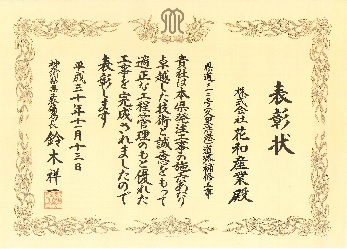 表彰状
株式会社 花和産業殿
貴社は本県発注工事の施工にあたり
卓越した技術と誠意をもって
適正な工程管理のもと優れた
工事を完成されましたので
表彰します
平成三十年十一月十三日
鈴木祥一